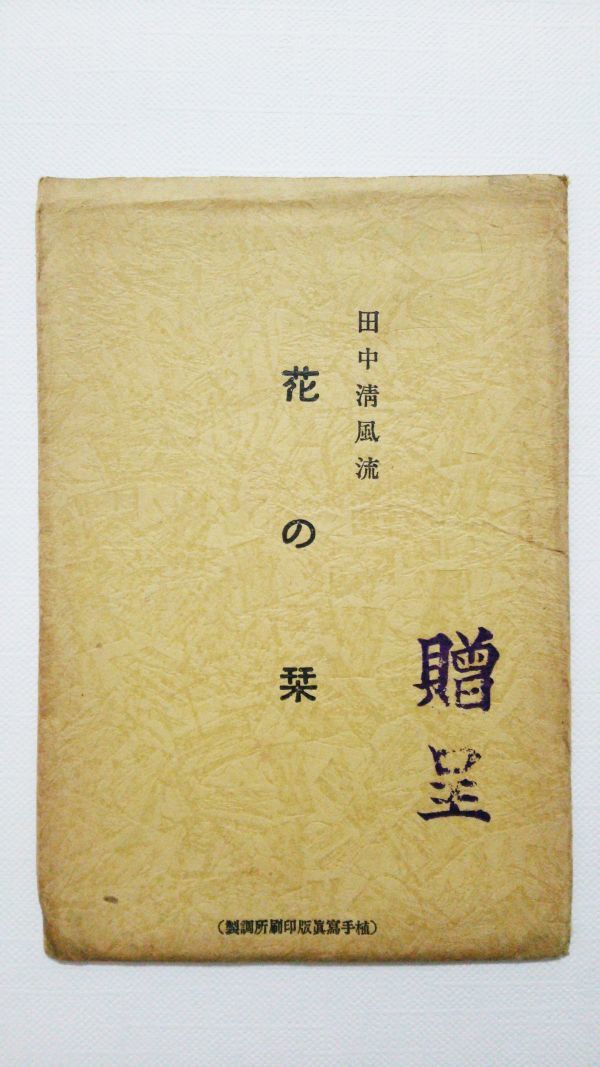 田中清風流
花の栞
贈呈
(植手寫眞版印刷所調製)